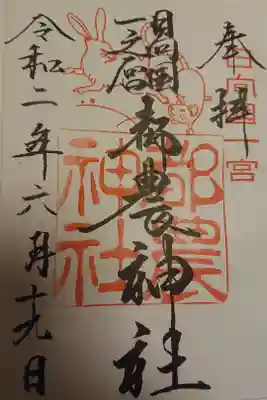 奉拝
日向国一宮
日向国
一之宮
都農神社
都農
神社
令和二年六月十九日